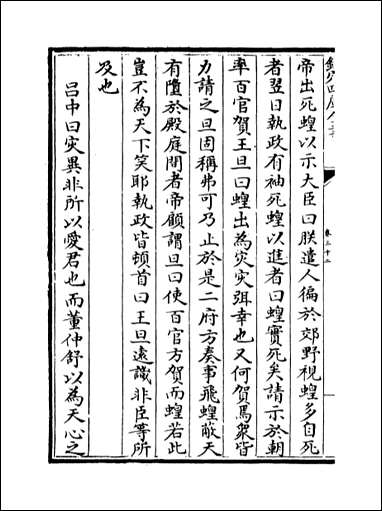 欽定四庫全書
卷三十二
帝出死蝗以示大臣曰朕遣人徧於郊野視蝗多自死
者翌日執政有袖死蝗以進者曰蝗實死矣請示於朝
率百官賀王旦曰蝗出為災災弭幸也又何賀焉衆皆
力請之旦固稱弗可乃止於是二府方奏事飛蝗蔽天
有隕於殿庭間者帝顧謂旦曰使百官方賀而蝗若此
豈不為天下笑耶執政皆頓首曰王旦遠識非臣等所
及也
吕中曰災異非所以愛君也而董仲舒以為天心之